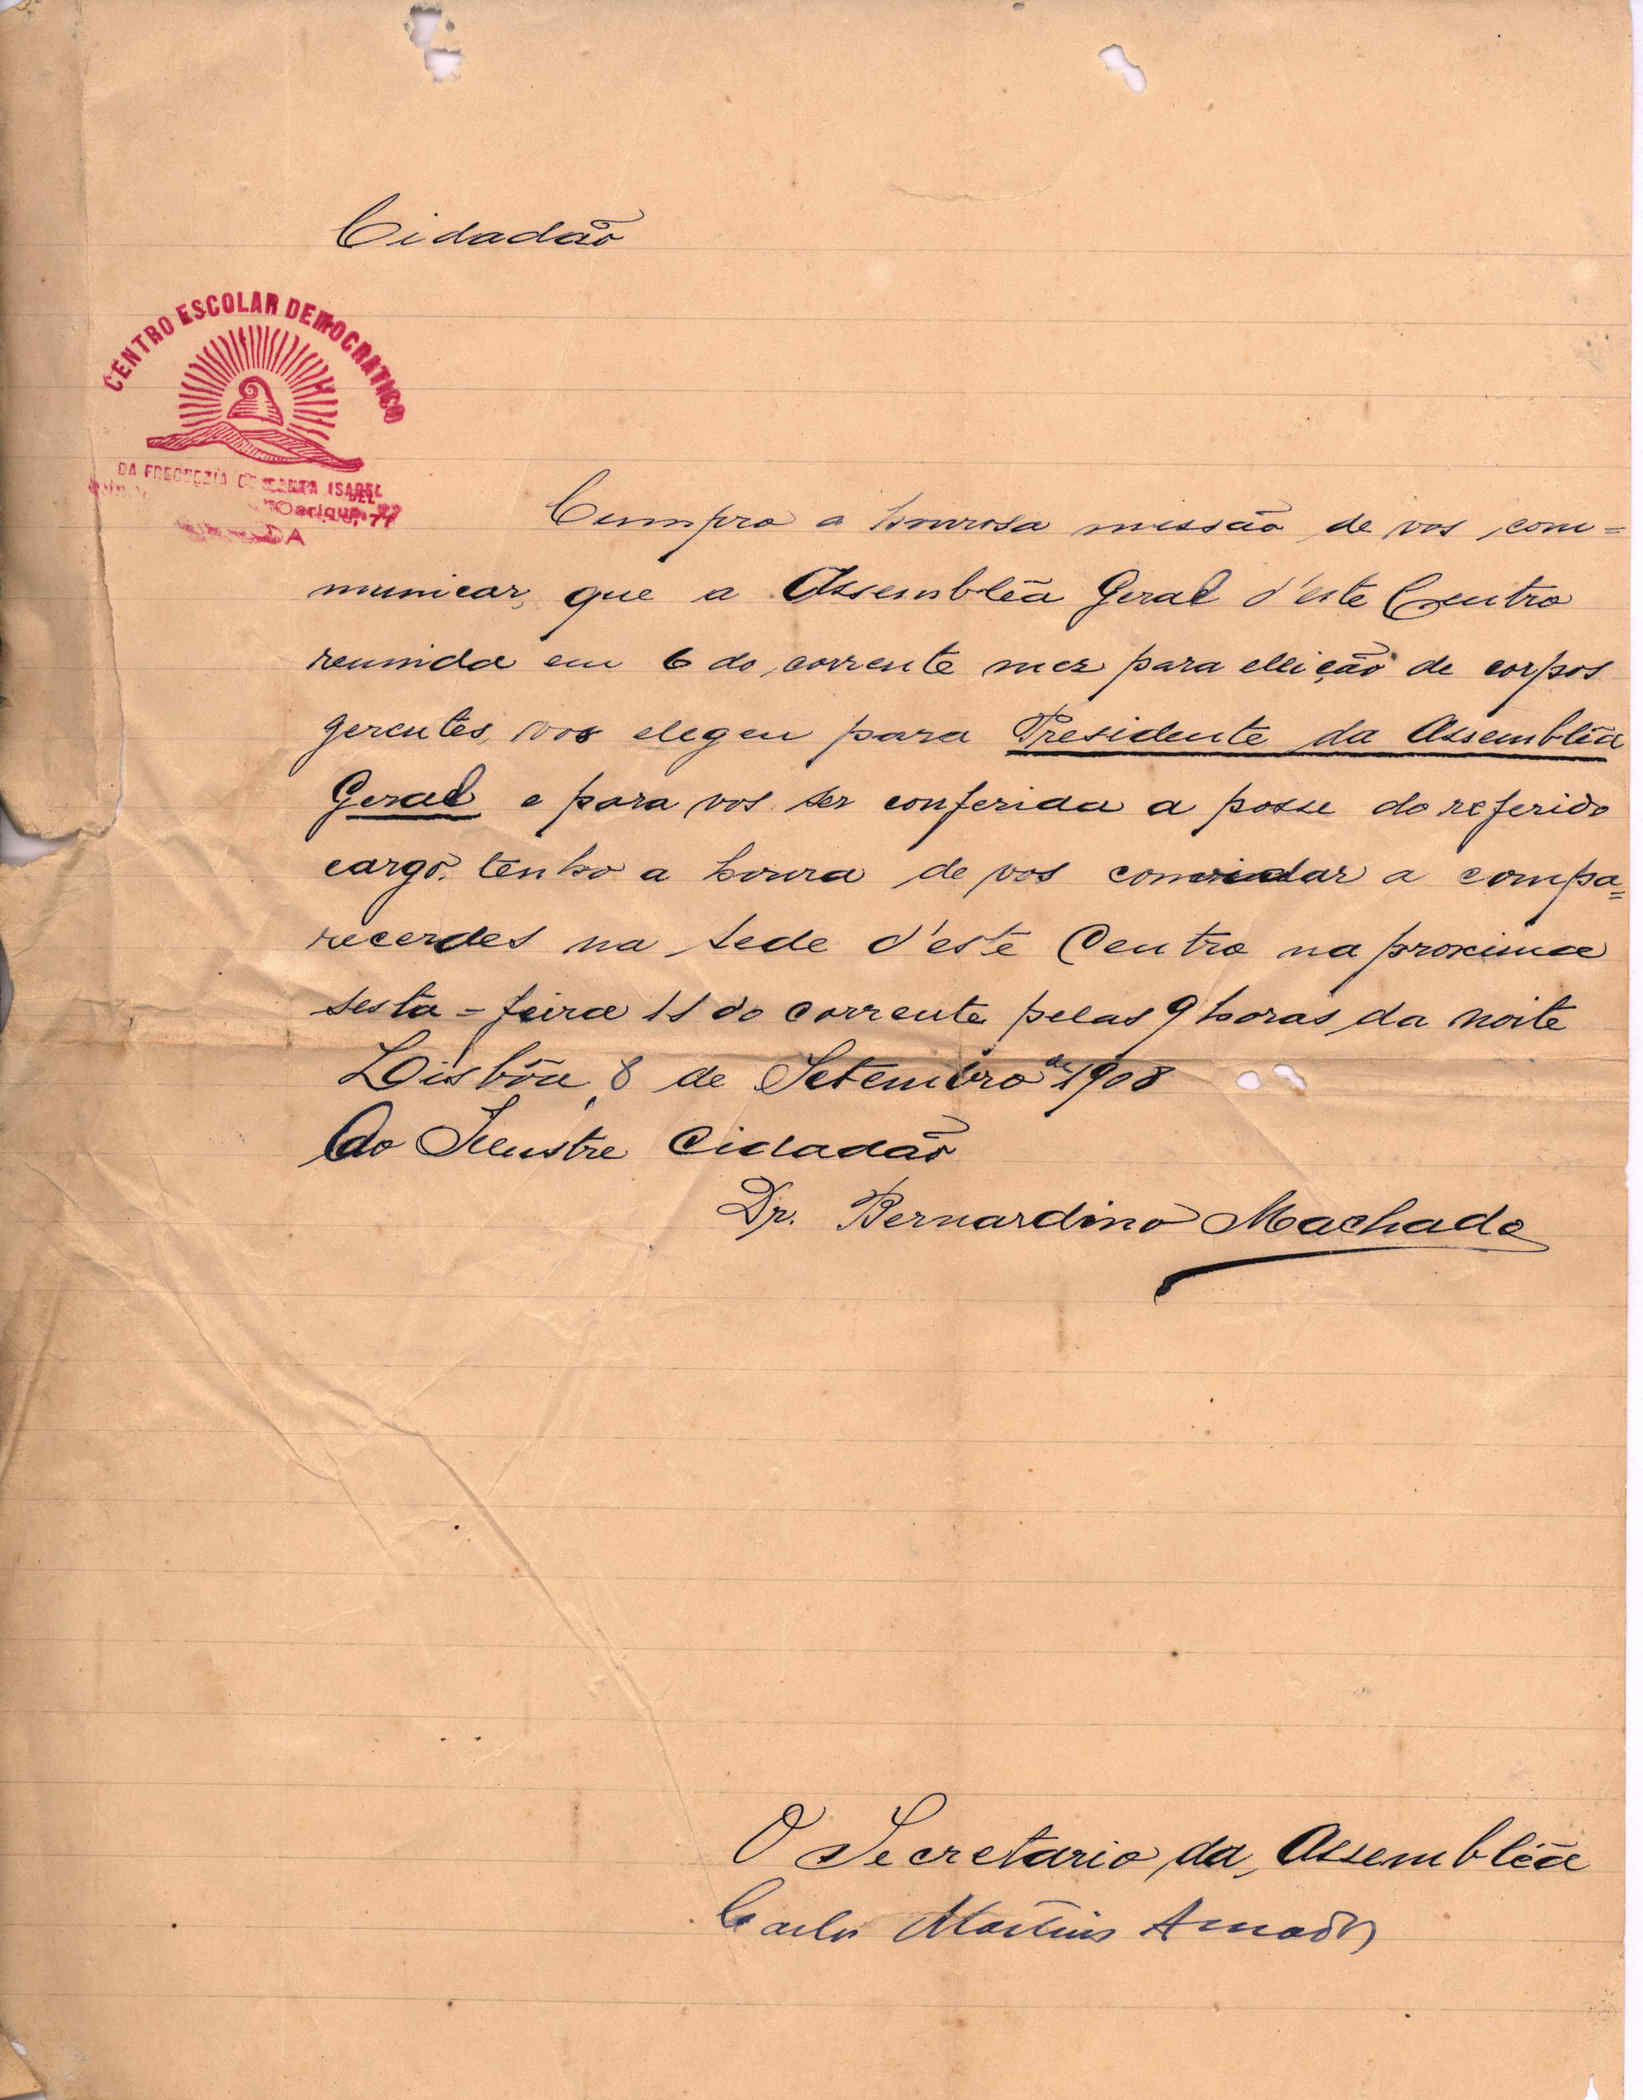 Cidadão
CENTRO ESCOLAR DEMOCRATICO
DA FREGUEZIA DE SANTA ISABEL
Cumpro a honrosa missão de vos com=
municar, que a Assemblêa Geral d'este Centro
reunida em 6 do corrente mez para elleição de corpos
gerentes, vos elegeu para Presidente da Assemblêa
Geral e para vos ser conferida a posse do referido
cargo, tenho a honra de vos convidar a compa=
recerdes na sede d'este Centro na proxima
sesta=feira 11 do corrente pelas 9 horas da noite
Lisbôa, 8 de Setembro de 1908
Ao Illustre Cidadão
Dr. Bernardino Machado
O Secretario da Assemblêa
Carlos Martins Amador